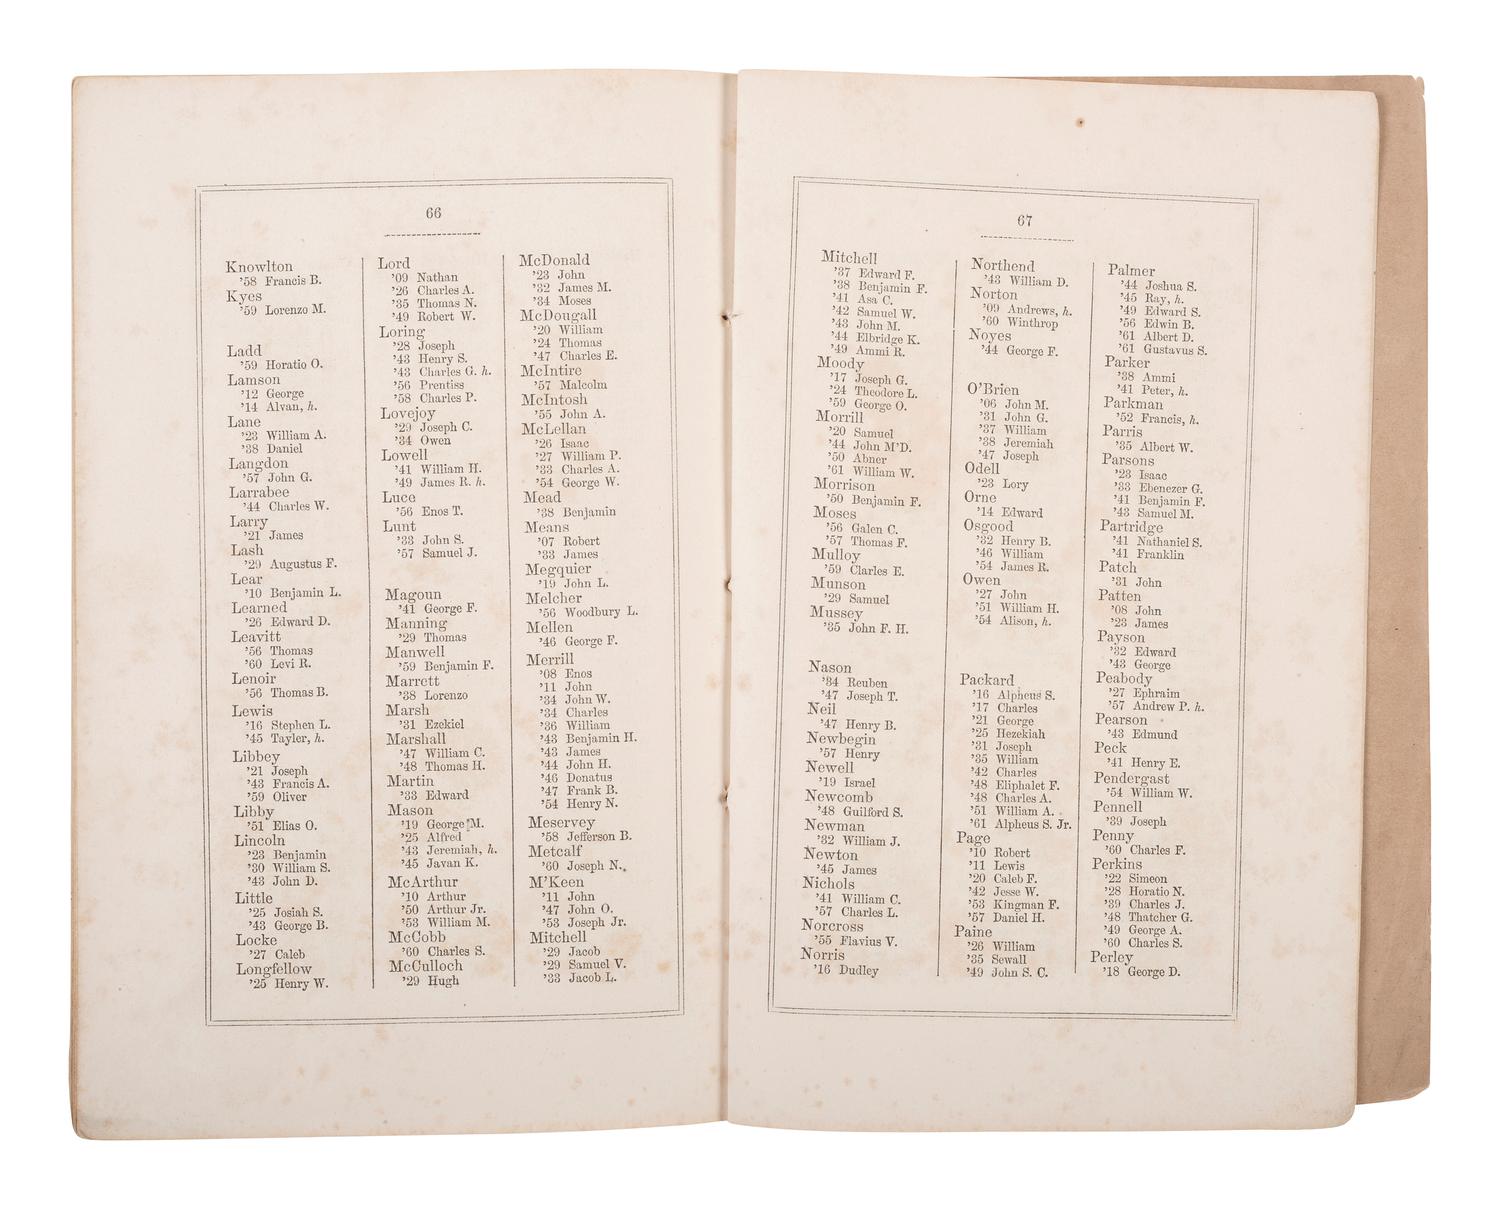 66
Knowlton
’58 Francis B.
Kyes
’59 Lorenzo M.
Ladd
’59 Horatio O.
Lamson
’12 George
’14 Alvan, h.
Lane
’23 William A.
’38 Daniel
Langdon
’57 John G.
Larrabee
’44 Charles W.
Larry
’21 James
Lash
’29 Augustus F.
Lear
’10 Benjamin L.
Learned
’26 Edward D.
Leavitt
’56 Thomas
’60 Levi R.
Lenoir
’56 Thomas B.
Lewis
’16 Stephen L.
’45 Tayler, h.
Libbey
’21 Joseph
’43 Francis A.
’59 Oliver
Libby
’51 Elias O.
Lincoln
’23 Benjamin
’30 William S.
’43 John D.
Little
’25 Josiah S.
’43 George B.
Locke
’27 Caleb
Longfellow
’25 Henry W.
Lord
’09 Nathan
’26 Charles A.
’35 Thomas N.
’49 Robert W.
Loring
’28 Joseph
’43 Henry S.
’43 Charles G. h.
’56 Prentiss
’58 Charles P.
Lovejoy
’29 Joseph C.
’34 Owen
Lowell
’41 William H.
’49 James R. h.
Luce
’56 Enos T.
Lunt
’33 John S.
’57 Samuel J.
Magoun
’41 George F.
Manning
’29 Thomas
Manwell
’59 Benjamin F.
Marrett
’38 Lorenzo
Marsh
’31 Ezekiel
Marshall
’47 William C.
’48 Thomas H.
Martin
’33 Edward
Mason
’19 George M.
’25 Alfred
’43 Jeremiah, h.
’45 Javan K.
McArthur
’10 Arthur
’50 Arthur Jr.
’53 William M.
McCobb
’60 Charles S.
McCulloch
’29 Hugh
McDonald
’23 John
’32 James M.
’34 Moses
McDougall
’20 William
’24 Thomas
’47 Charles E.
McIntire
’57 Malcolm
McIntosh
’55 John A.
McLellan
’26 Isaac
’27 William P.
’33 Charles A.
’54 George W.
Mead
’38 Benjamin
Means
’07 Robert
’33 James
Megquier
’19 John L.
Melcher
’56 Woodbury L.
Mellen
’46 George F.
Merrill
’08 Enos
’11 John
’34 John W.
’34 Charles
’36 William
’43 Benjamin H.
’43 James
’44 John H.
’46 Donatus
’47 Frank B.
’54 Henry N.
Meservey
’58 Jefferson B.
Metcalf
’60 Joseph N.
M’Keen
’11 John
’47 John O.
’53 Joseph Jr.
Mitchell
’29 Jacob
’29 Samuel V.
’33 Jacob L.
67
Mitchell
’37 Edward F.
’38 Benjamin F.
’41 Asa C.
’42 Samuel W.
’43 John M.
’44 Elbridge K.
’49 Ammi R.
Moody
’17 Joseph G.
’24 Theodore L.
’59 George O.
Morrill
’20 Samuel
’44 John M’D.
’50 Abner
’61 William W.
Morrison
’50 Benjamin F.
Moses
’56 Galen C.
’57 Thomas F.
Mulloy
’59 Clarles E.
Munson
’29 Samuel
Mussey
’35 John F. H.
Nason
’34 Reuben
’47 Joseph T.
Neil
’47 Henry B.
Newbegin
’57 Henry
Newell
’19 Israel
Newcomb
’48 Guilford S.
Newman
’32 William J.
Newton
’45 James
Nichols
’41 William C.
’57 Charles L.
Norcross
’55 Flavius V.
Norris
’16 Dudley
Northend
’43 William D.
Norton
’09 Andrews, h.
’60 Winthrop
Noyes
’44 George F.
O’Brien
’06 John M.
’31 John G.
’37 William
’38 Jeremiah
’47 Joseph
Odell
’23 Lory
Orne
’14 Edward
Osgood
’32 Henry B.
’46 William
’54 James R.
Owen
’27 John
’51 William H.
’54 Alison, h.
Packard
’16 Alpheus S.
’17 Charles
’21 George
’25 Hezekiah
’31 Joseph
’35 William
’42 Charles
’48 Eliphalet F.
’48 Charles A.
’51 William A.
’61 Alpheus S. Jr.
Page
’10 Robert
’11 Lewis
’20 Caleb F.
’42 Jesse W.
’53 Kingman F.
’57 Daniel H.
Paine
’26 William
’35 Sewall
’49 John S. C.
Palmer
’44 Joshua S.
’45 Ray, h.
’49 Edward S.
’56 Edwin B.
’61 Albert D.
’61 Gustavus S.
Parker
’38 Ammi
’41 Peter, h.
Parkman
’52 Francis, h.
Parris
’35 Albert W.
Parsons
’23 Isaac
’33 Ebenezer G.
’41 Benjamin F.
’43 Samuel M.
Partridge
’41 Nathaniel S.
’41 Franklin
Patch
’31 John
Patten
’08 John
’23 James
Payson
’32 Edward
’43 George
Peabody
’27 Ephraim
’57 Andrew P. h.
Pearson
’43 Edmund
Peck
’41 Henry E.
Pendergast
’54 William W.
Pennell
’39 Joseph
Penny
’60 Charles F.
Perkins
’22 Simeon
’28 Horatio N.
’39 Charles J.
’48 Thatcher G.
’49 George A.
’60 Charles S.
Perley
’18 George D.